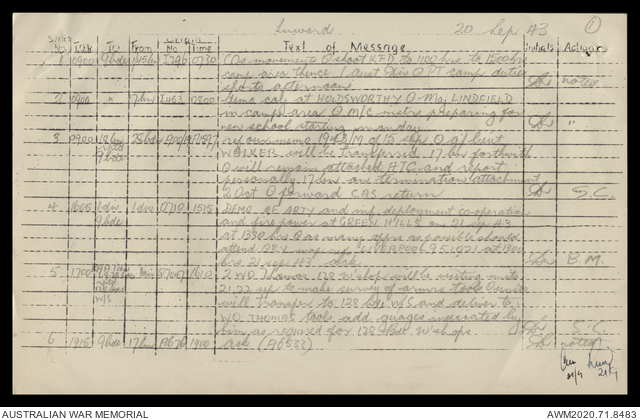 Inwards 20 Sep 43 1
Serial No. TOR To From Origin No Time Text of Message Initials Action
1 0900 9 bde 145 bn I796 0730 COs movements O shoot KFD to 1100 hrs to 1500 hrs
camp area thence 1 Aust O PT camp duties
sports afternoon noted
2 0900 " 17 bn 0800 demo cols at HOLDSWORTHY O Maj LINDFIELD
in camp area O M/C metrs preparing for
new school starting monday "
3 0900 18 bn 28 bde
9 bde
of 15 sep O lieut
WALKER will be transferred 17 bn forthwith
O will remain attached ATC and report
personally 17 bn on termination attachment
2 Oct O forward CAS return S.C.
4 1605 1 div 0710 1515 DEMO OF ARTY and inf deployment co-operation
9 bde and fire power at GREEN HILLS on 21 sep 43
at 1330 hrs O as many offrs as possible should
attend O RV map ref LIVERPOOL 951921 at 1300
hrs 21 sep 43 B.M.
5 1700 2 WO Thomas 128 W'shops will be visiting units
21, 22 sep to make survey of armrs tools O units
will transfer to 128 bde W/S and deliver to
W/O THOMAS tools and guages indicated by
him as required for 128 W'shops S.C.
6 1915 9 bde 17 bn A676 1900 Ask (A6533) noted
21/9 21/9
AUSTRALIAN WAR MEMORIAL AWM2020.71.8483